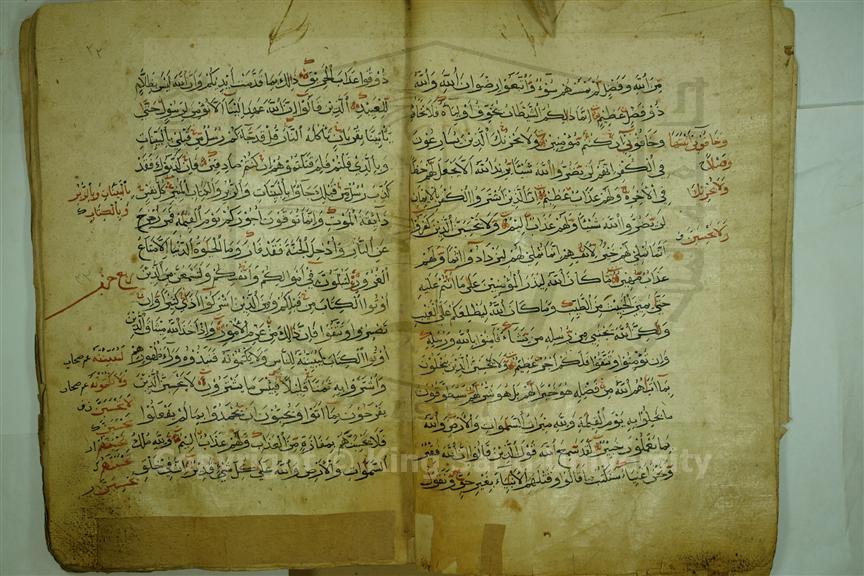 من الله وفضل لم يمسسهم سوء واتبعوا رضوان الله والله
ذو فضل عظيم انما ذلكم الشيطان يخوف اولياءه فلا تخافوهم
وخافوني ان كنتم مؤمنين ولا يحزنك الذين يسارعون
في الكفر انهم لن يضروا الله شيئا يريد الله الا يجعل لهم حظا
في الاخرة ولهم عذاب عظيم ان الذين اشتروا الكفر بالايمان
لن يضروا الله شيئا ولهم عذاب اليم ولا يحسبن الذين كفروا
انما نملي لهم خير لانفسهم انما نملي لهم ليزدادوا اثما ولهم
عذاب مهين ما كان الله ليذر المؤمنين على ما انتم عليه
حتى يميز الخبيث من الطيب وما كان الله ليطلعكم على الغيب
ولكن الله يجتبي من رسله من يشاء فامنوا بالله ورسله
وان تؤمنوا وتتقوا فلكم اجر عظيم ولا يحسبن الذين يبخلون
بما اتاهم الله من فضله هو خيرا لهم بل هو شر لهم سيطوقون
ما بخلوا به يوم القيمة ولله ميراث السموات والارض والله
بما تعملون خبير لقد سمع الله قول الذين قالوا ان الله فقير
ونحن اغنياء سنكتب ما قالوا وقتلهم الانبياء بغير حق ونقول
وخافوني
ولا يحزنك
ولا يحسبن
ذوقوا عذاب الحريق ذلك بما قدمت ايديكم وان الله ليس بظلام
للعبيد الذين قالوا ان الله عهد الينا الا نؤمن لرسول حتى
ياتينا بقربان تاكله النار قل قد جاءكم رسل من قبلي بالبينات
وبالذي قلتم فلم قتلتموهم ان كنتم صادقين فان كذبوك فقد
كذب رسل من قبلك جاؤا بالبينات والزبر والكتاب المنير كل نفس
ذائقة الموت وانما توفون اجوركم يوم القيمة فمن زحزح
عن النار وادخل الجنة فقد فاز وما الحيوة الدنيا الا متاع
الغرور لتبلون في اموالكم وانفسكم ولتسمعن من الذين
اوتوا الكتاب من قبلكم ومن الذين اشركوا اذى كثيرا وان
تصبروا وتتقوا فان ذلك من عزم الامور واذ اخذ الله ميثاق الذين
اوتوا الكتاب ليبيننه للناس ولا يكتمونه فنبذوه وراء ظهورهم
واشتروا به ثمنا قليلا فبئس ما يشترون لا يحسبن الذين
يفرحون بما اتوا ويحبون ان يحمدوا بما لم يفعلوا
فلا يحسبنهم بمفازة من العذاب ولهم عذاب اليم ولله ملك
السموات والارض والله على كل شيء قدير ان في خلق
بالبينات وبالزبر
وبالكتاب
ربع حزب
Copyright © King Saud University